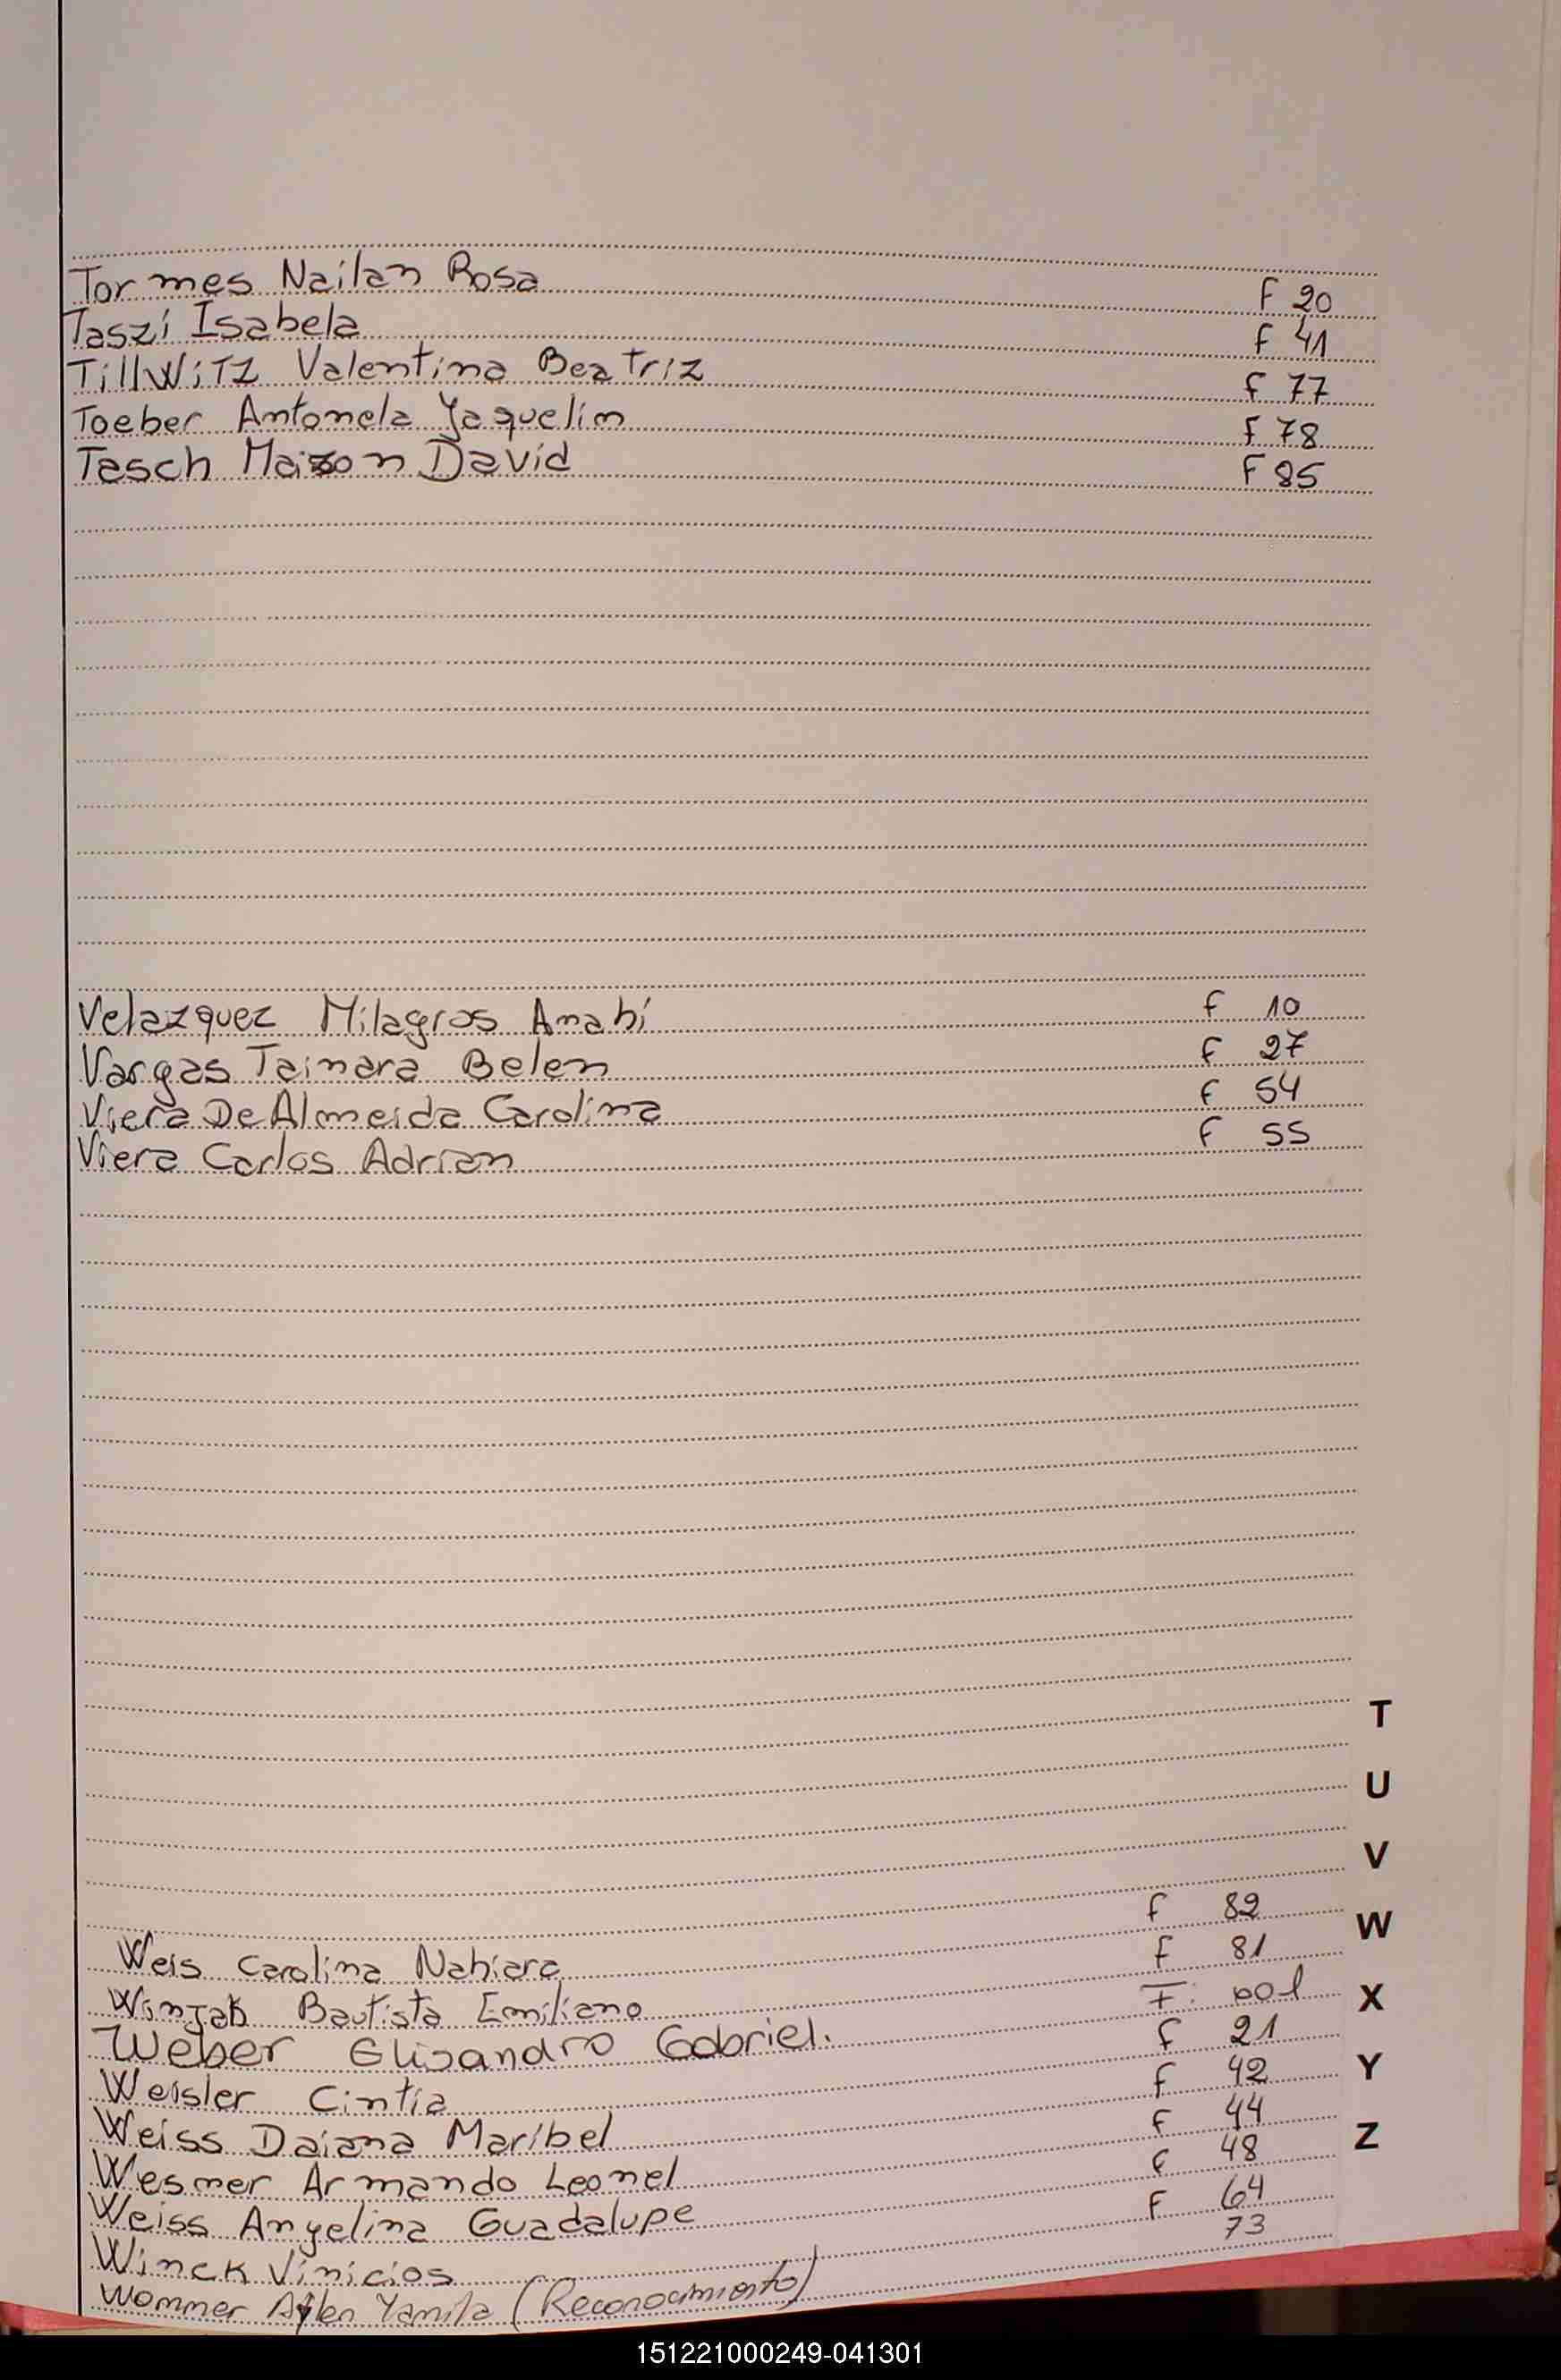 Tormes Nailan Rosa F 20
Taszi Isabela F 41
TillWiTz Valentina Beatriz F 77
Toeber Antonela Yaquelin F 78
Tesch David F 85
Velazquez Milagros Anahí F 10
Vargas Tainara Belen F 27
Viera De Almeida Carolina F 54
Viera Carlos Adrian F 55
Weis Carolina Nahiara F 82
Bautista Emiliano F 81
Weber Elisandro Gabriel. F: 001
Weisler Cintia F 21
Weiss Daiana Maribel F 42
Wesner Armando Leonel F 44
Weiss Angelina Guadalupe F 48
Winck Vinicios F 64
Wommer Aylen Yamila (Reconocimiento) 73
T
U
V
W
X
Y
Z
151221000249-041301